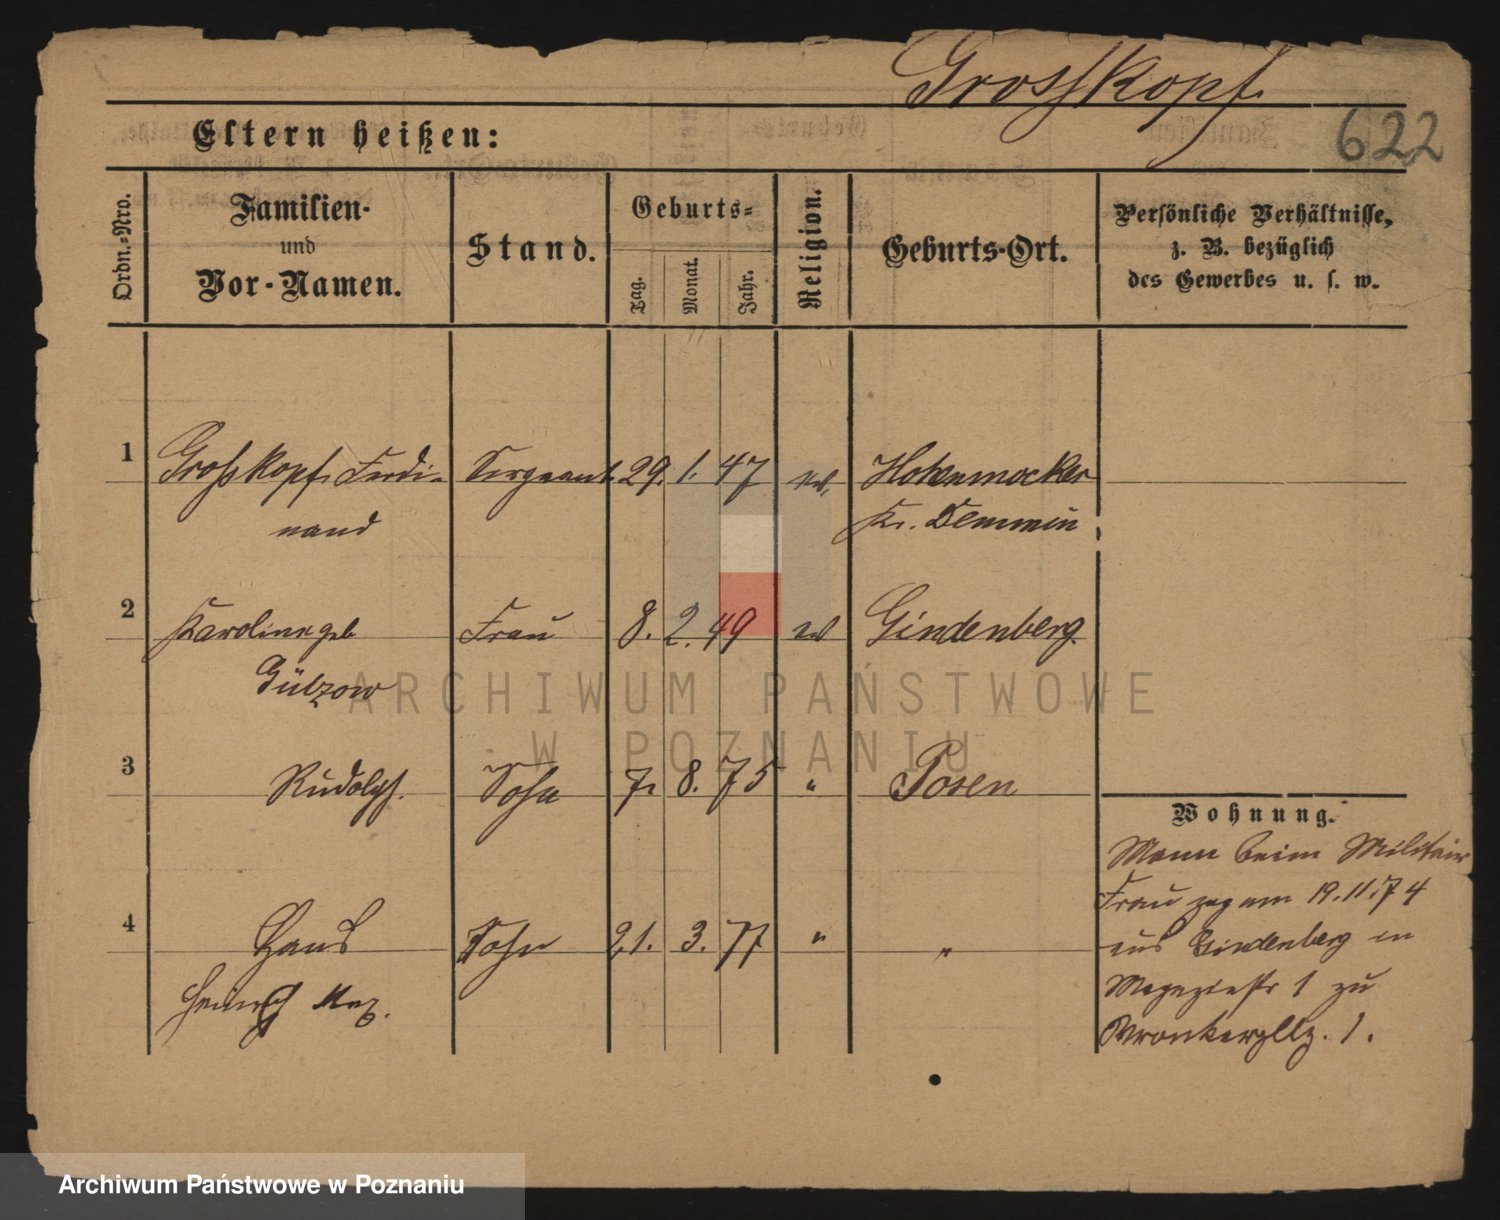 Grosskopf
622
Eltern heißen:
Ordn.=Nro.
Familien-
und
Vor-Namen.
Stand.
Geburts=
Tag.
Monat.
Jahr.
Religion.
Geburts-Ort.
Persönliche Verhältnisse,
z. B. bezüglich
des Gewerbes u. s. w.
1 Großkopf, Ferdi- Sergeant 29. 1. 47 ev. Hohenmocker
nand Kr. Demmin
2 Karoline geb Frau 8. 2. 49 ev Gindenberg.
Gülzow
3 Rudolph. Sohn 7. 8. 75 " Posen
4 Hans Sohn 21. 3. 77 " "
Heinrich Max.
Wohnung.
Mann beim Militair
Frau zog am 19.11.74
aus Gindenberg in
Magazinstr 1 zu
Wronkerplatz. 1.
ARCHIWUM PAŃSTWOWE
W POZNANIU
Archiwum Państwowe w Poznaniu